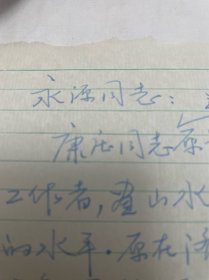 永源同志：
康庄同志原
工作者，画山水
的水平。原在